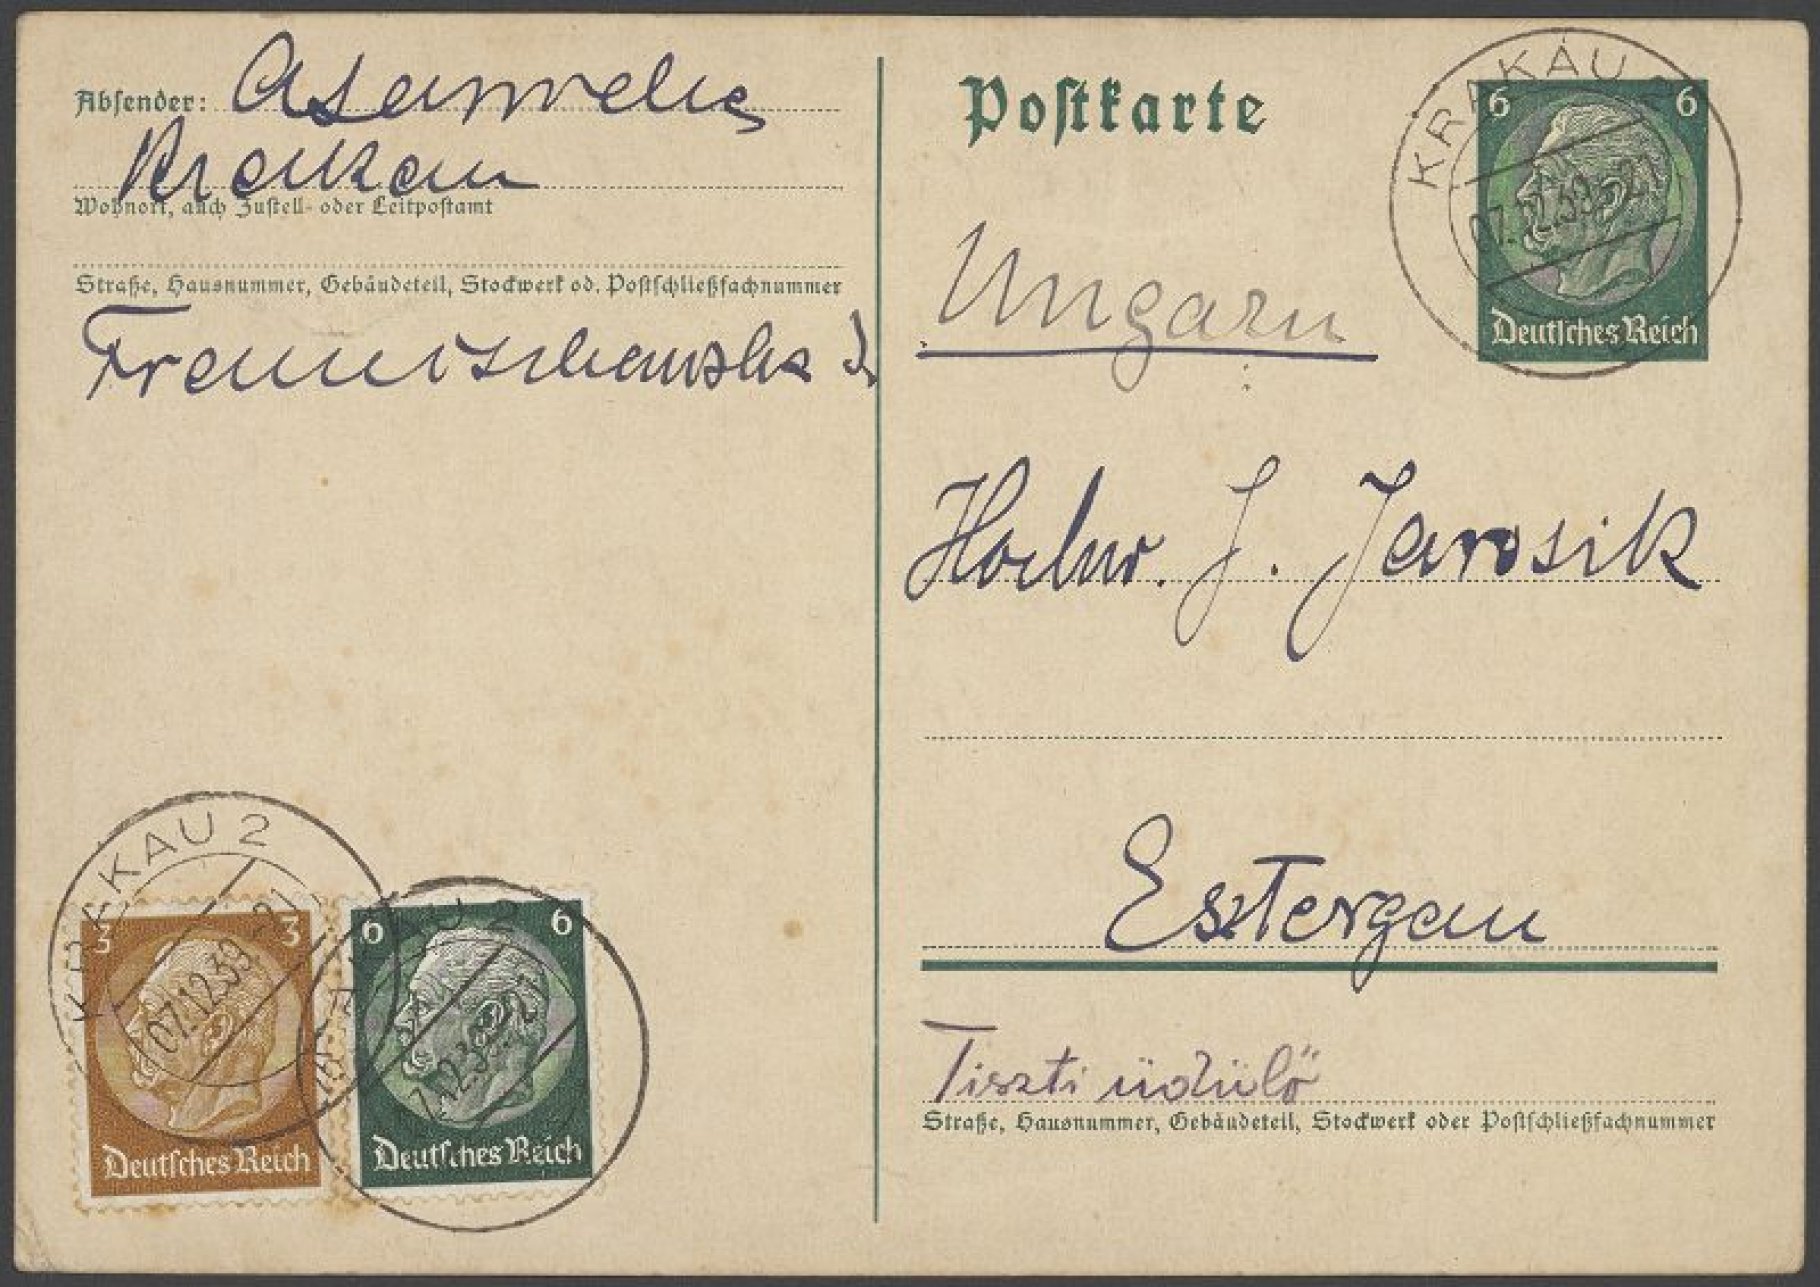 Absender:
Krakau
Wohnort, auch Zustell- oder Leitpostamt
Straße, Hausnummer, Gebäudeteil, Stockwerk od. Postschließfachnummer
KRAKAU 2
07.12.39.-21
3 3
Deutsches Reich
KRAKAU 2
7.12.39.-21
6 6
Deutsches Reich
Postkarte
KRAKAU 2
07.12.39.-21
6 6
Deutsches Reich
Ungarn
Hochw. J. Jarosik
Esztergau
Tiszti üdülő
Straße, Hausnummer, Gebäudeteil, Stockwerk oder Postschließfachnummer